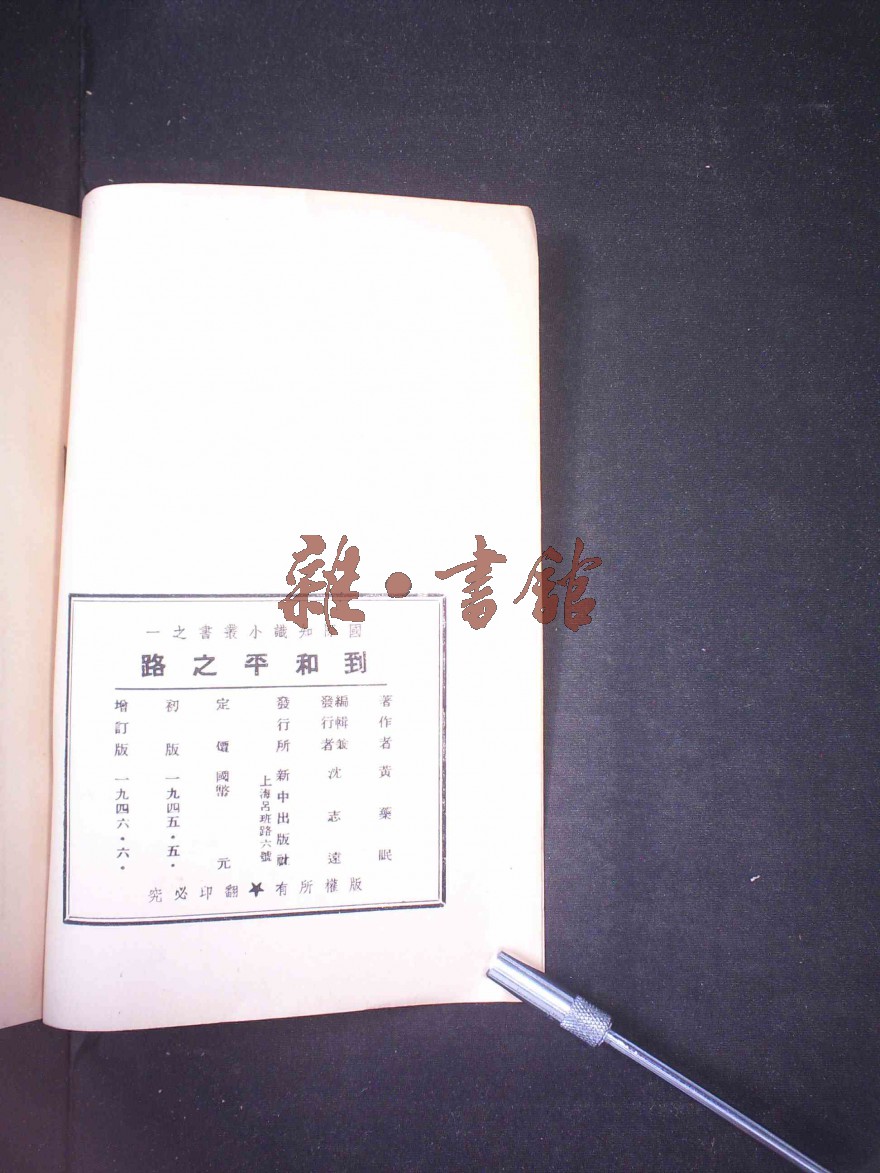 雜·書館
國際知識小叢書之一
到和平之路
著作者 黃藥眠
編輯兼發行者 沈志遠
發行所 新中出版社
上海呂班路六號
定價 國幣 元
初版 一九四五·五·
增訂版 一九四六·六·
版權所有★翻印必究